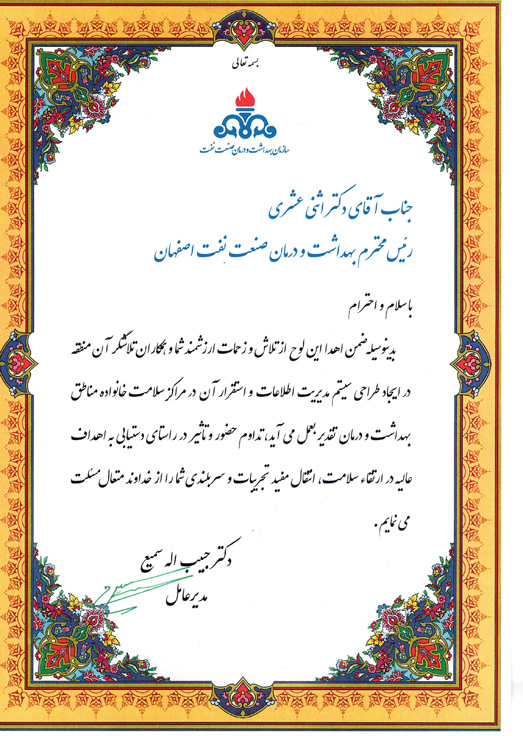 بسمه تعالی
سازمان بهداشت و درمان صنعت نفت
جناب آقای دکتر اثنی عشری
رئیس محترم بهداشت و درمان صنعت نفت اصفهان
باسلام و احترام
بدینوسیله ضمن اهدا این لوح از تلاش و زحمات ارزشمند شما و همکاران تلاشگر آن منطقه
در ایجاد طراحی سیتم مدیریت اطلاعات و استقرار آن در مراکز سلامت خانواده مناطق
بهداشت و درمان تقدیر بعمل می آید، تداوم حضور و تاثیر در راستای دستیابی به اهداف
عالیه در ارتقاء سلامت، انتقال مفید تجربیات و سربلندی شما را از خداوند متعال مسئلت
می نمایم .
دکتر حبیب اله سمیع
مدیرعامل